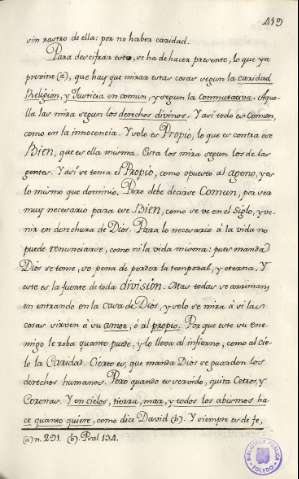 419
sin rastro de ella: por no haber caridad.
Para descifrar esto, se ha de hacer presente, lo que ya
previne (a), que hay que mirar estas cosas segun la caridad
Religion, y Justicia en comun, y segun la conmutativa. Aque
lla las mira segun los derechos divinos. Y asi todo es Comun,
como en la innocencia. Y solo es Propio, lo que es contra ese
Bien, que es ella misma. Esta los mira segun los de las
gentes. Y asi se toma el Propio, como opuesto al ageno, y es
lo mismo que dominio. Pero debe decirse Comun, por sea
muy necesario para ese Bien, como se ve en el siglo, y ve
nir en derechura de Dios. Para lo necesario a la vida no
puede renunciarse, como ni la vida misma: pues manda
Dios se tome, so pena de perder la temporal, y eterna. Y
esta es la fuente de toda division. Mas todas se arruinan,
en entrando en la casa de Dios, y solo se mira á si las
cosas sirven á su amor, ó al propio. Por que este su ene
migo le roba quanto puede, y lo lleva al infierno, como al Cie
lo la Caridad. Cierto es, que manda Dios se guarden los
derechos humanos. Pero quando es servido, quita Cetros, y
Coronas. Y en cielos, tierra, mar, y todos los abismos ha
ce quanto quiere, como dice David (b). Y siempre es de fe,
(a) n. 291. (b) Psal 134.